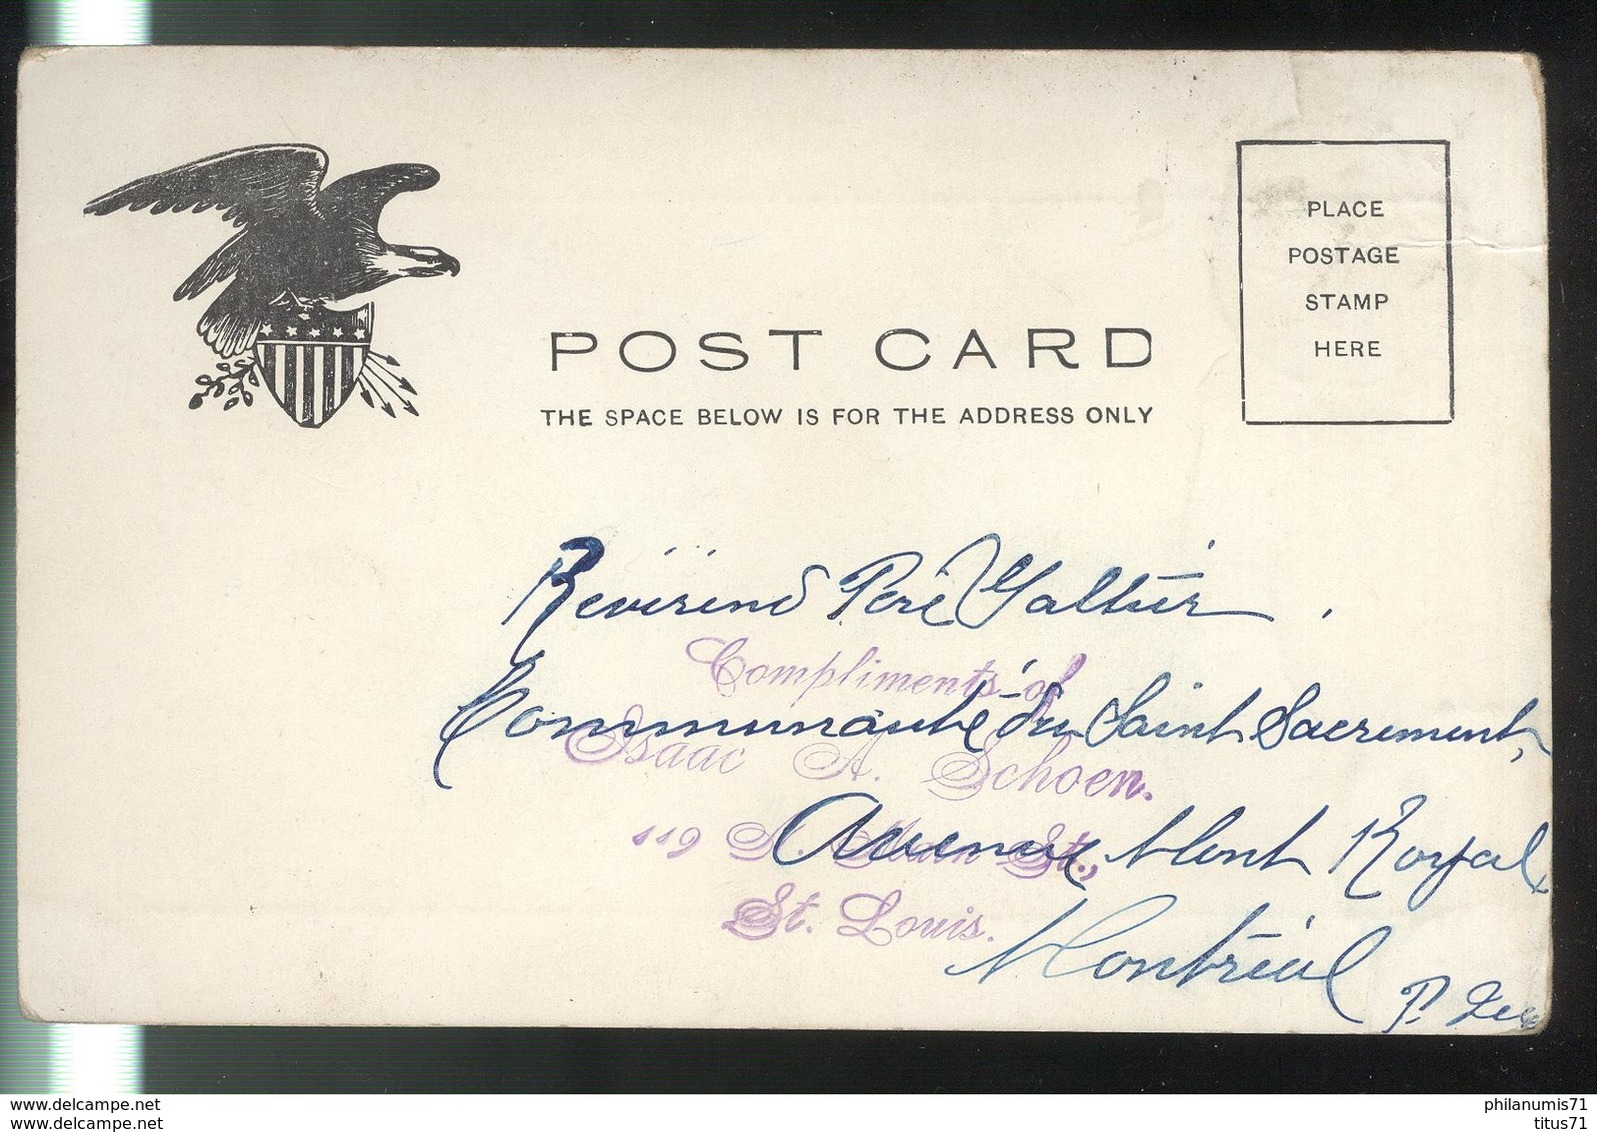 POST CARD
THE SPACE BELOW IS FOR THE ADDRESS ONLY
PLACE
POSTAGE
STAMP
HERE
Révérend Père Galtier
Communauté du Saint Sacrement,
Avenue Mont Royal,
Montréal
P. Que
Compliments of
Isaac A. Schoen.
119 Main St.,
St. Louis.
www.delcampe.net
www.delcampe.net
philanumis71
titus71